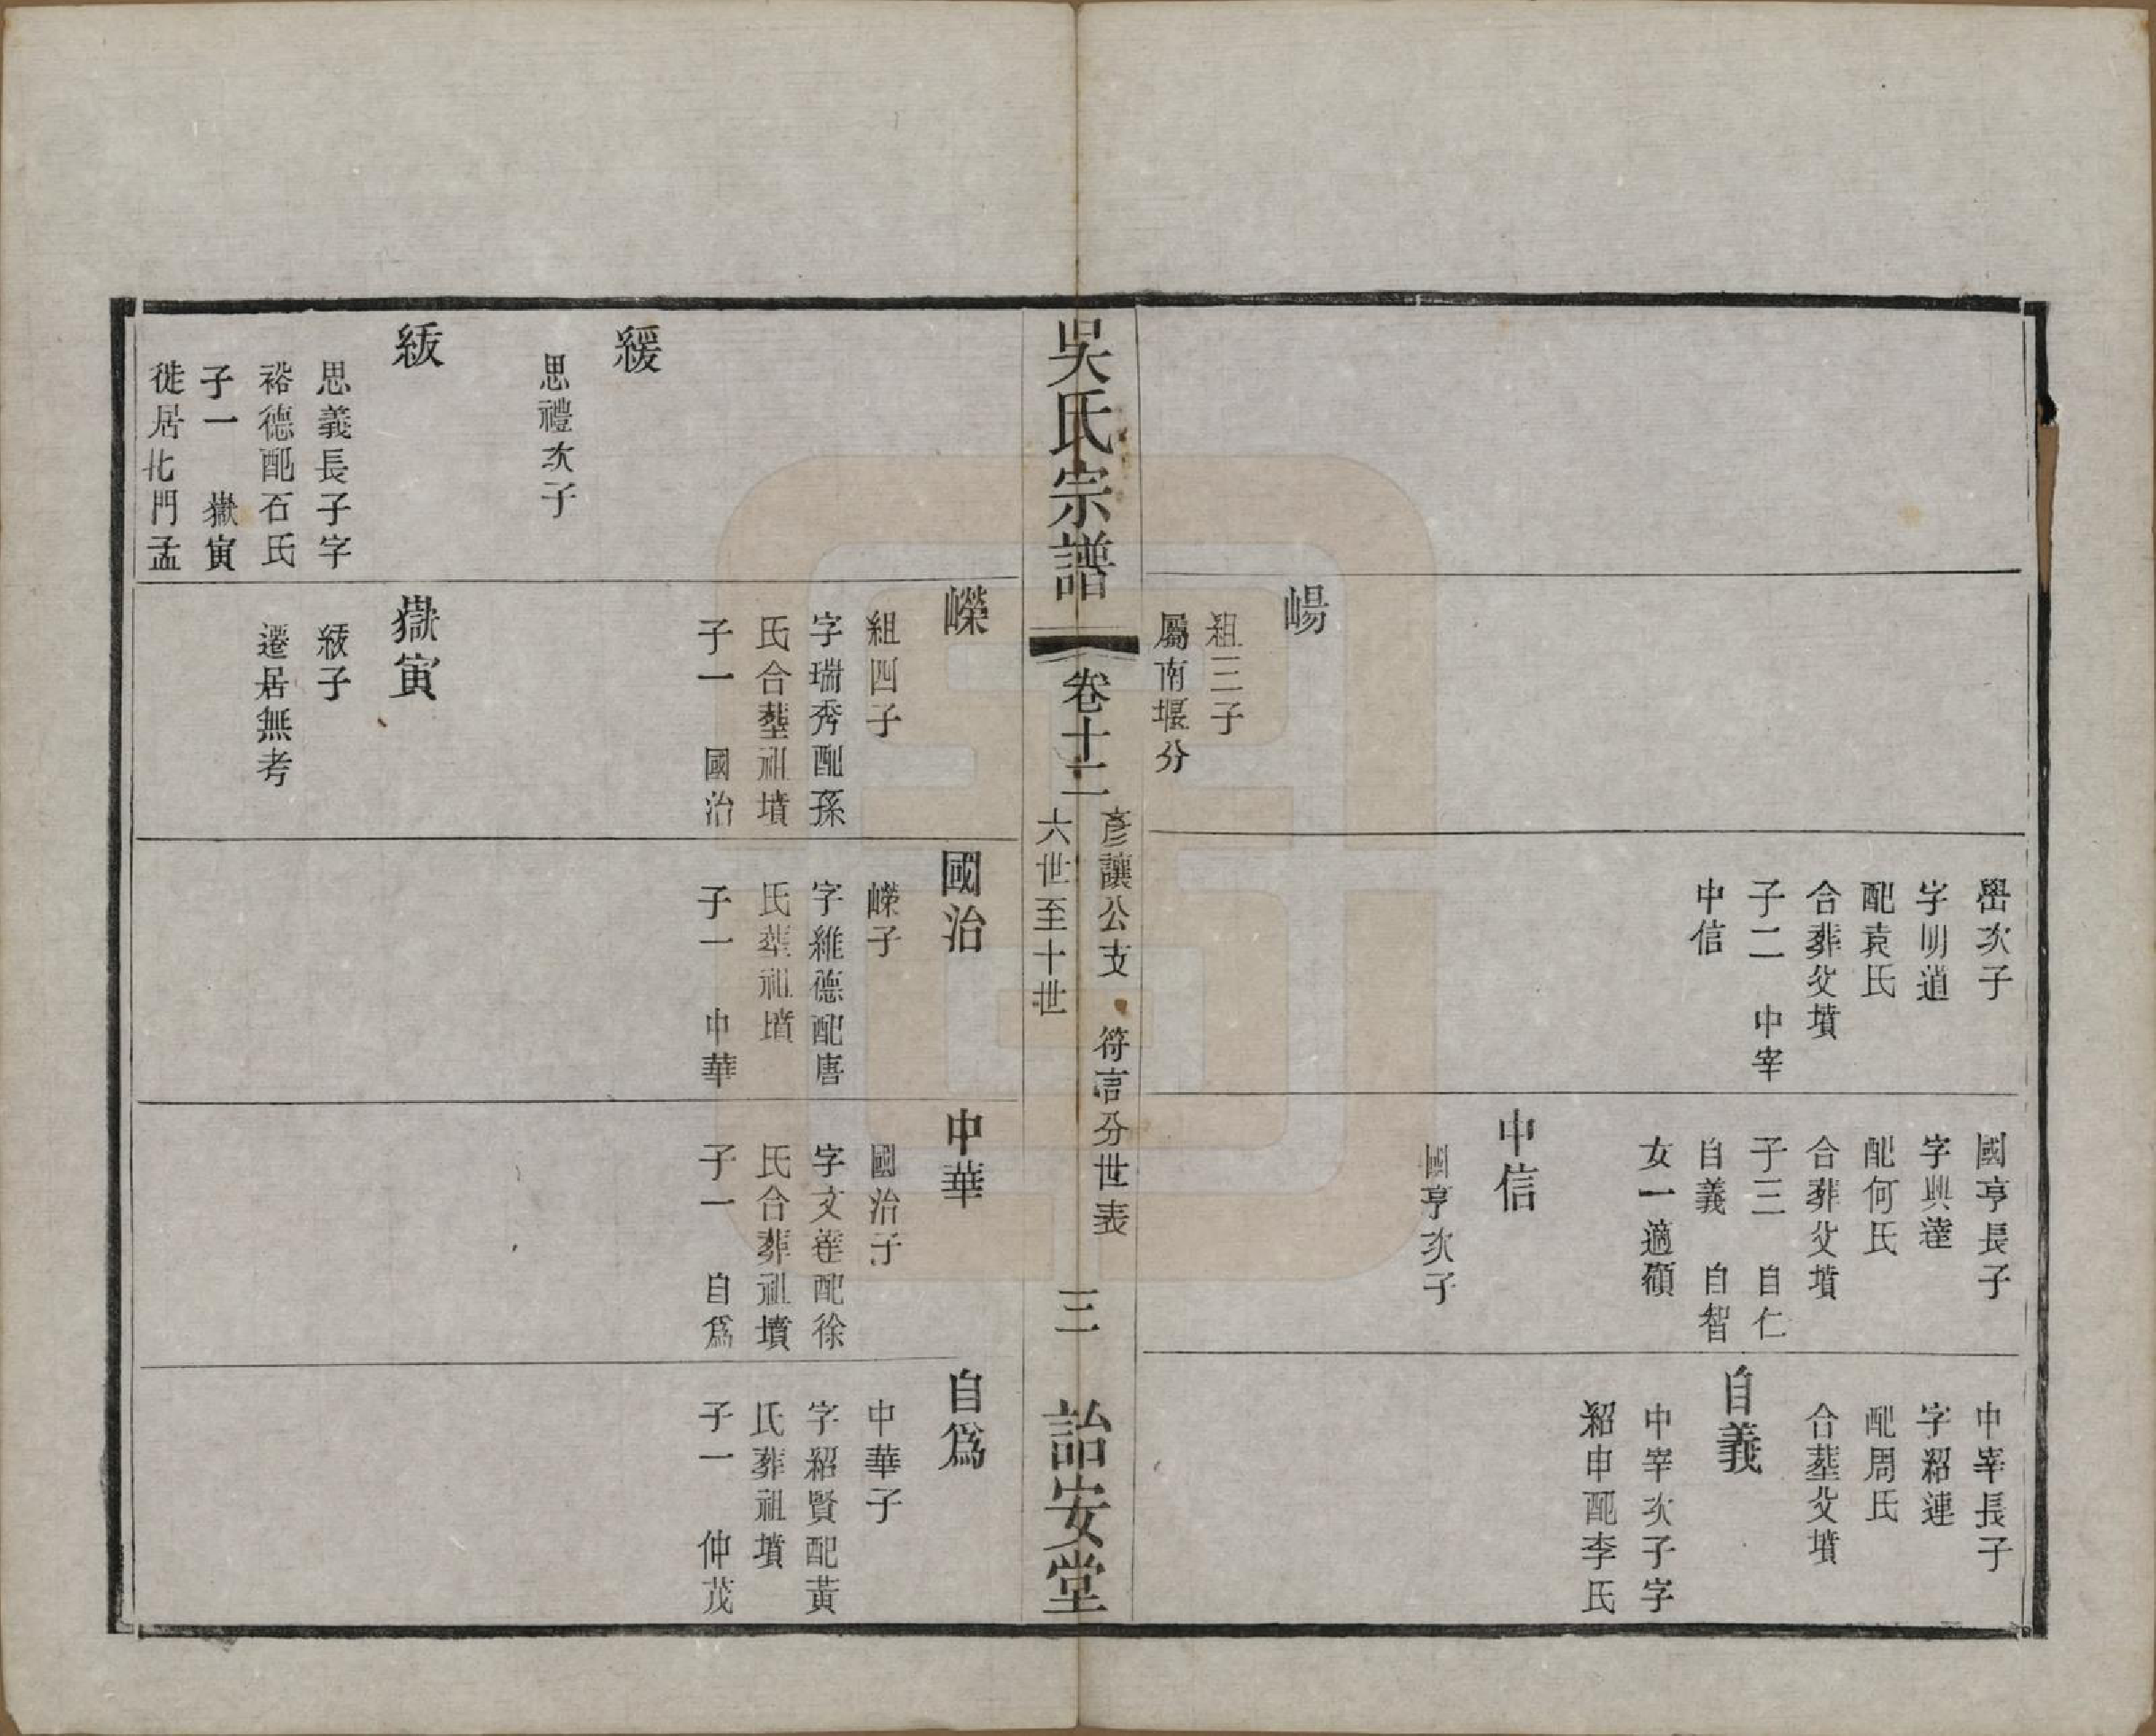 崵
組三子
屬南堰分
嶨次子
字明道
配袁氏
合葬父墳
子二　中宰
中信
國亨長子
字興達
配何氏
合葬父墳
子三　自仁
自義　自智
女一適顧
中信
國亨次子
中宰長子
字紹連
配周氏
合塟父墳
自義
中宰次子字
紹申配李氏
吳氏宗譜
卷十二
彥讓公支　符言分世表
六世至十世
三
詒安堂
緩
思禮次子
紱
思義長子字
裕德配石氏
子一　嶽寅
徙居北門孟
嶸
組四子
字瑞秀配孫
氏合塟祖墳
子一　國治
嶽寅
紱子
遷居無考
國治
嶸子
字維德配唐
氏塟祖墳
子一　中華
中華
國治子
字文達配徐
氏合葬祖墳
子一　自爲
自爲
中華子
字紹賢配黃
氏葬祖墳
子一　仲茂